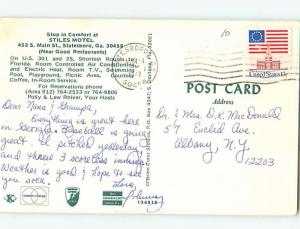 Stop in Comfort at
STILES MOTEL
453 S. Main St., Statesboro, Ga. 30458
(Near Good Restaurants)
On U.S. 301 and 25, Shortest Route to
Florida. Room Controlled Air Conditioning
and Electric Heat, Room T.V., Swimming
Pool, Playground, Picnic Area, Courtesy
Coffee, In-Room Service.
For Reservations phone
(Area 912) 764-2533 or 764-9806
Polly & Law Rivier, Your Hosts
Dear Nana & Grampa,
Everything is great here
in Georgia. Baseball is going
great. I've pitched yesterday
and threw 3 scoreless innings.
Weather is good & hope to see
you soon.
Love,
134818
10
United States 13c
POST CARD
Address
Dr. & Mrs. D.K. MacDonald
57 Euclid Ave.
Albany, N.Y.
12203